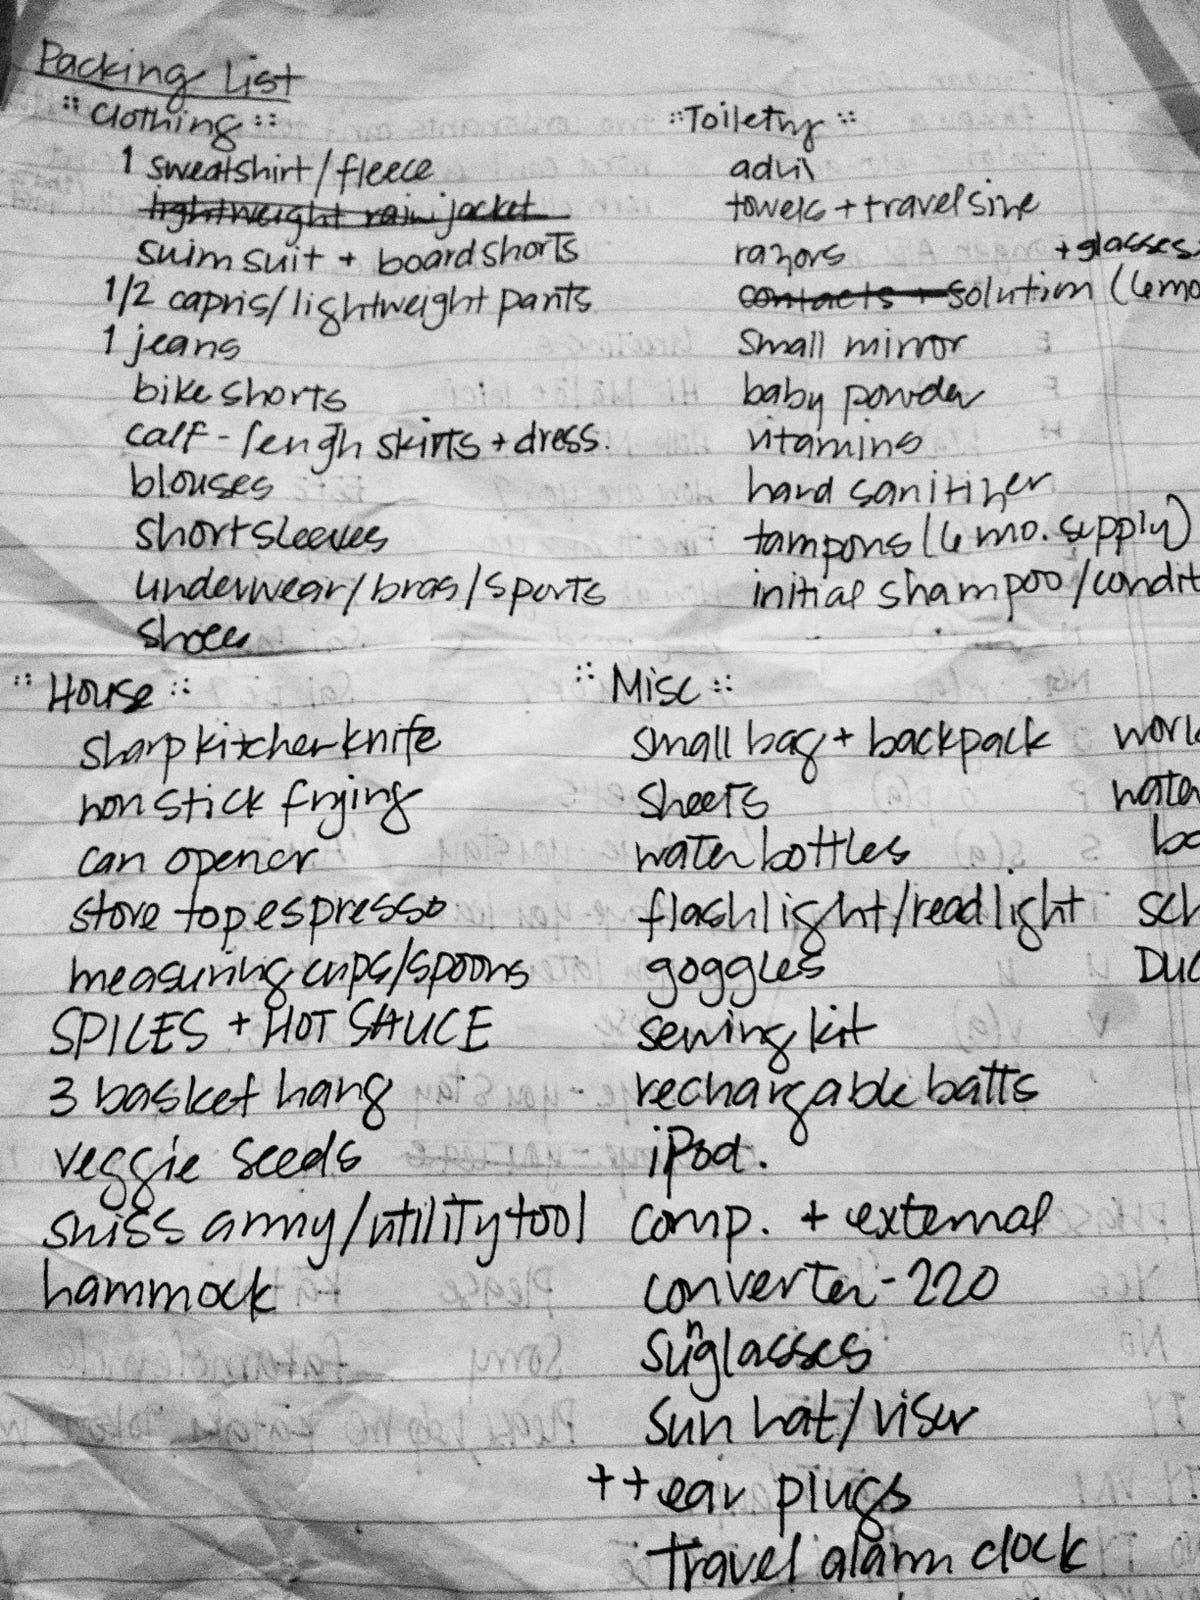 Packing List
:: Clothing ::
1 sweatshirt/fleece
lightweight rain jacket
suimsuit + boardshorts
1/2 capris/lightweight pants
1 jeans
bike shorts
calf-lengh skirts + dress.
blouses
shortsleeves
underwear/bras/sports
shoes
:: Toiletry ::
advil
towels + travelsize
razors
+ glasses
contacts + solution (6mo
small mirror
baby powder
vitamins
hand sanitizer
tampons (6 mo. supply)
initial shampoo/condit
:: House ::
sharp kitchen knife
nonstick frying
can opener
stove top espresso
measuring cups/spoons
SPICES + HOT SAUCE
3 basket hang
veggie seeds
swiss army/utility tool
hammock
:: Misc ::
small bag + backpack
sheets
water bottles
flashlight/readlight
goggles
sewing kit
rechargable batts
iPod.
comp. + external
converter-220
sunglasses
sun hat/visor
++ ear plugs
travel alarm clock